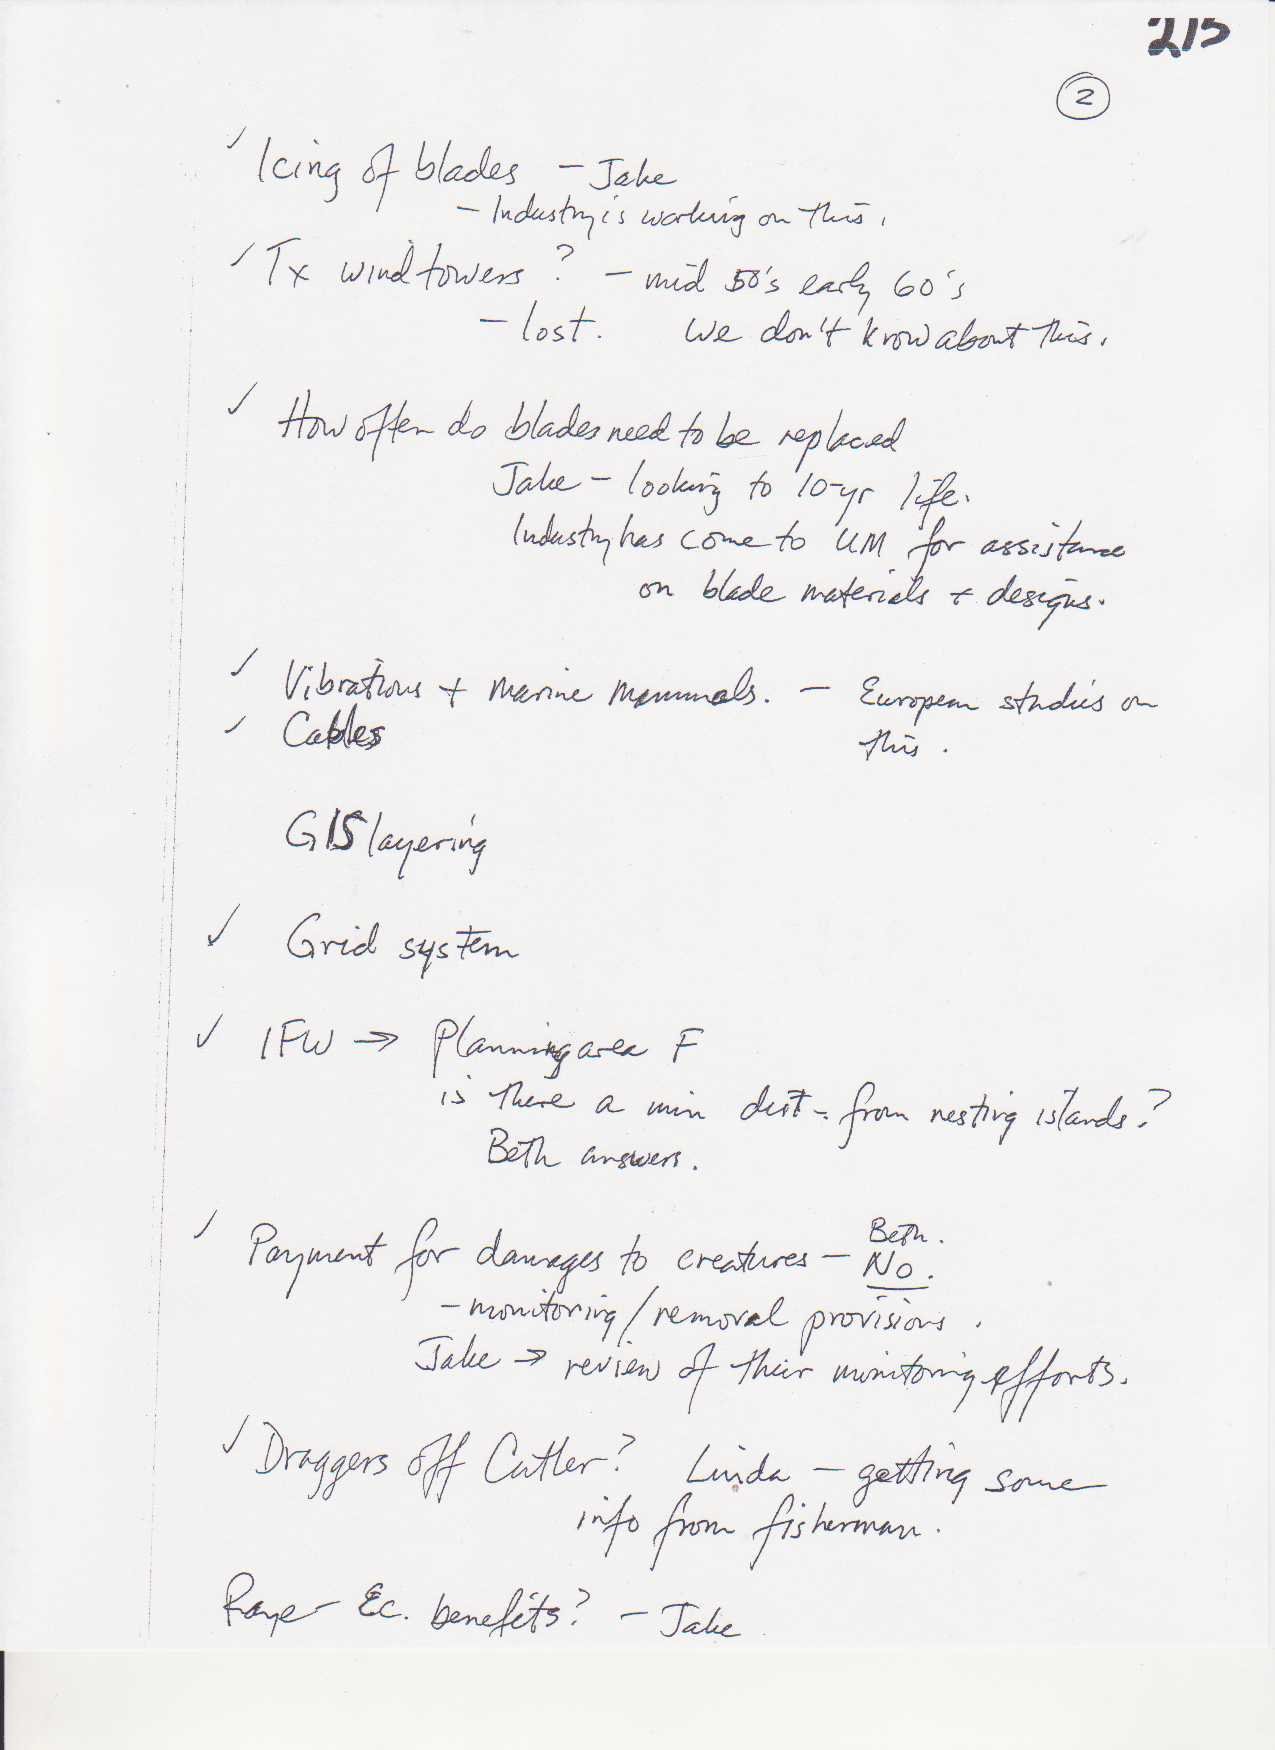 215
2
✓ Icing of blades - Jake
- Industry is working on this.
✓ Tx wind towers? - mid 50's early 60's
- lost. we don't know about this.
✓ How often do blades need to be replaced
Jake - looking to 10-yr life.
Industry has come to UM for assistance
on blade materials + designs.
✓ Vibrations + marine mammals. - European studies on
this.
✓ Cables
GIS layering
✓ Grid system
✓ IFW → Planning area F
is there a min dist. from nesting islands?
Beth answers.
✓ Payment for damages to creatures - Beth.
No.
- monitoring/removal provisions.
Jake → review of their monitoring efforts.
✓ Draggers off Cutler? Linda - getting some
info from fisherman.
Ec. benefits? - Jake